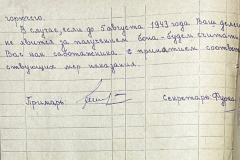 горючего.
В случае, если до 5 августа 1943 года Ваш делегат
не явится за получением вона - будем считать
Вас как саботажника с принятием соответ
ствующих мер наказания.
Примарь: Секретарь: